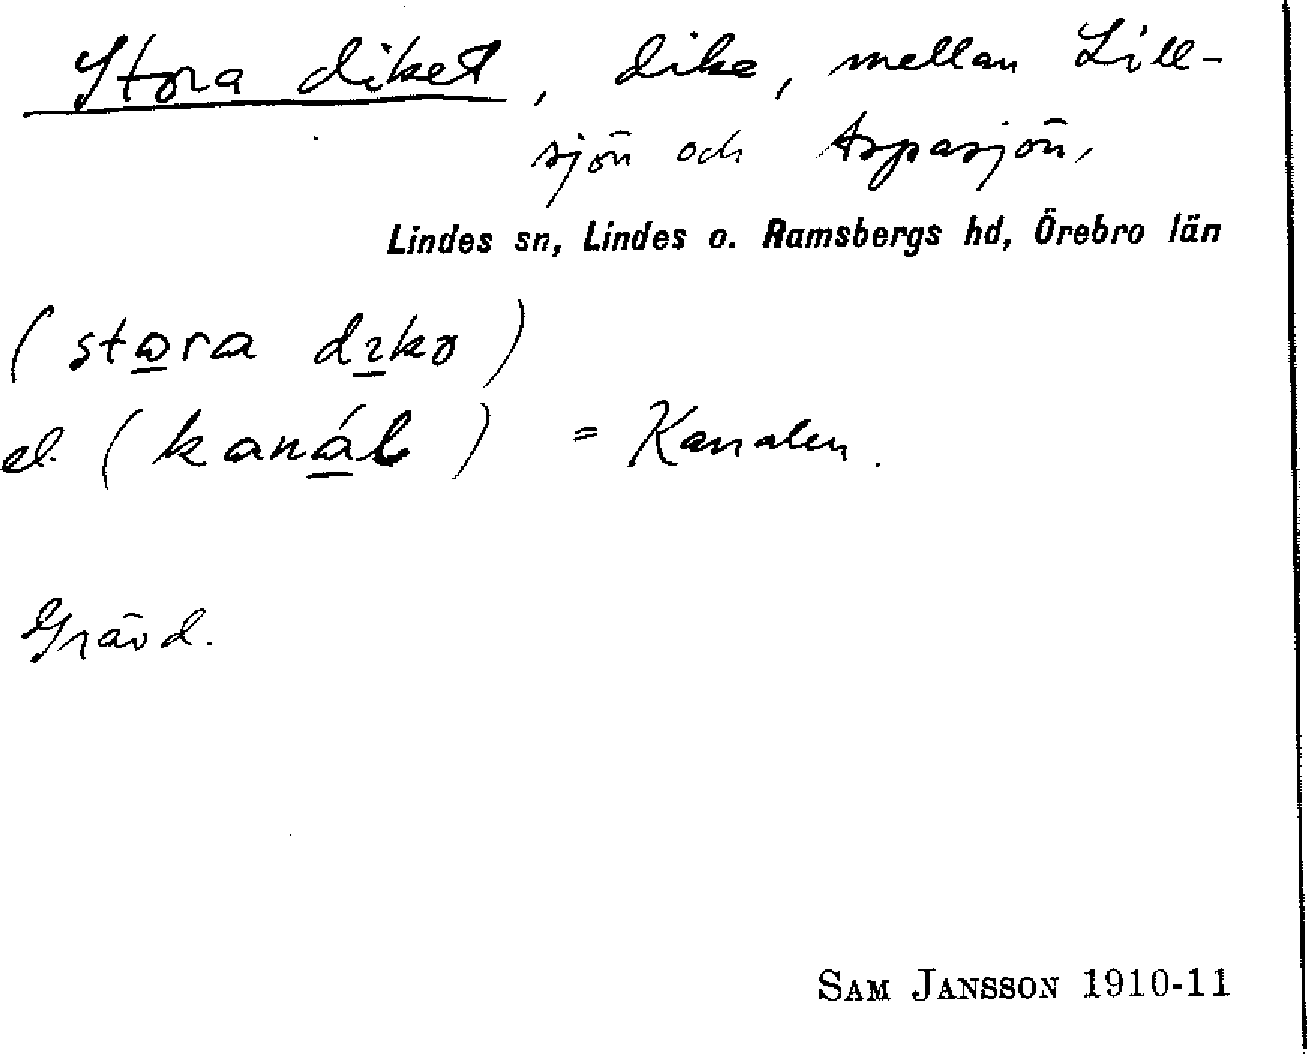 Stora diket, dike, mellan Lill-
sjön och Aspasjön,
Lindes sn, Lindes o. Ramsbergs hd, Örebro län
(stɷra dɩkə)
el. (kanáɭ) = Kanalen.
Grävd.
SAM JANSSON 1910-11